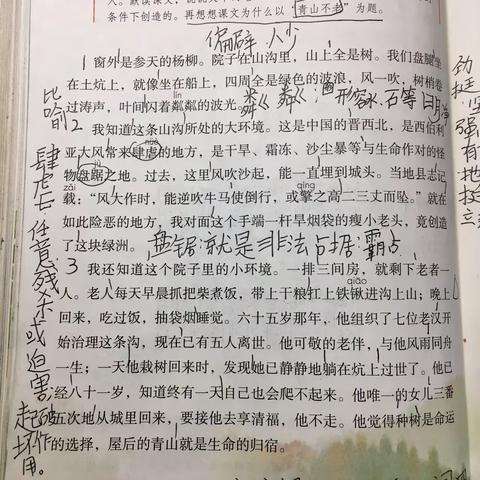 条件下创造的。再想想课文为什么以“青山不老”为题。
偏僻 人少
1 窗外是参天的杨柳。院子在山沟里，山上全是树。我们盘腿坐
在土炕上，就像坐在船上，四周全是绿色的波浪，风一吹，树梢卷
lín
过涛声，叶间闪着粼粼的波光。
粼粼：形容水、石等明净
比喻
2 我知道这条山沟所处的大环境。这是中国的晋西北，是西伯利
nüè
亚大风常来肆虐的地方，是干旱、霜冻、沙尘暴等与生命作对的怪
jù
物盘踞之地。过去，这里风吹沙起，能一直埋到城头。当地县志记
zǎi qíng
载：“风大作时，能逆吹牛马使倒行，或擎之高二三丈而坠。”就在
如此险恶的地方，我对面这个手端一杆旱烟袋的瘦小老头，竟创造
了这块绿洲。
盘锯：就是非法占据：霸占
3 我还知道这个院子里的小环境。一排三间房，就剩下老者一
人。老人每天早晨抓把柴煮饭，带上干粮扛上铁锹进沟上山；晚上
qiāo
回来，吃过饭，抽袋烟睡觉。六十五岁那年，他组织了七位老汉开
始治理这条沟，现在已有五人离世。他可敬的老伴，与他风雨同舟
一生；一天他栽树回来时，发现她已静静地躺在炕上过世了。他已
经八十一岁，知道终有一天自己也会爬不起来。他唯一的女儿三番
五次地从城里回来，要接他去享清福，他不走。他觉得种树是命运
的选择，屋后的青山就是生命的归宿。
肆虐：任意残杀或迫害
起破坏作用。
劲挺：坚强有力地挺立